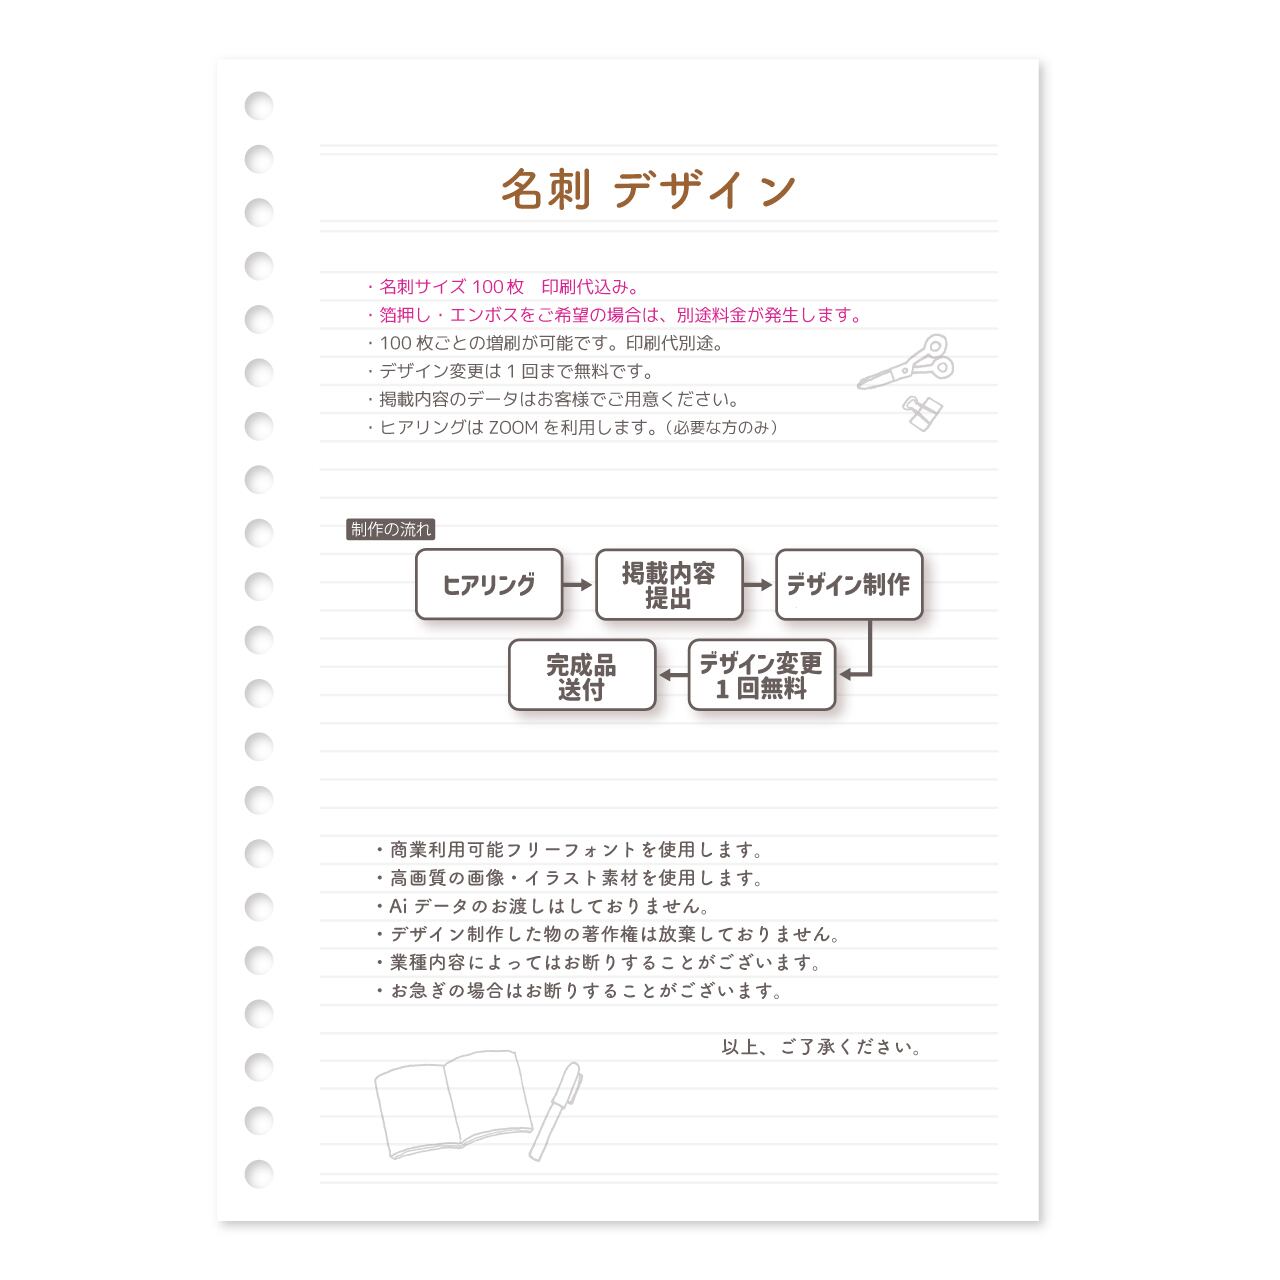 名刺 デザイン
・名刺サイズ 100枚　印刷代込み。
・箔押し・エンボスをご希望の場合は、別途料金が発生します。
・100 枚ごとの増刷が可能です。印刷代別途。
・デザイン変更は 1 回まで無料です。
・掲載内容のデータはお客様でご用意ください。
・ヒアリングは ZOOM を利用します。（必要な方のみ）
制作の流れ
ヒアリング
掲載内容
提出
デザイン制作
デザイン変更
1 回無料
完成品
送付
・商業利用可能フリーフォントを使用します。
・高画質の画像・イラスト素材を使用します。
・Ai データのお渡しはしておりません。
・デザイン制作した物の著作権は放棄しておりません。
・業種内容によってはお断りすることがございます。
・お急ぎの場合はお断りすることがございます。
以上、ご了承ください。